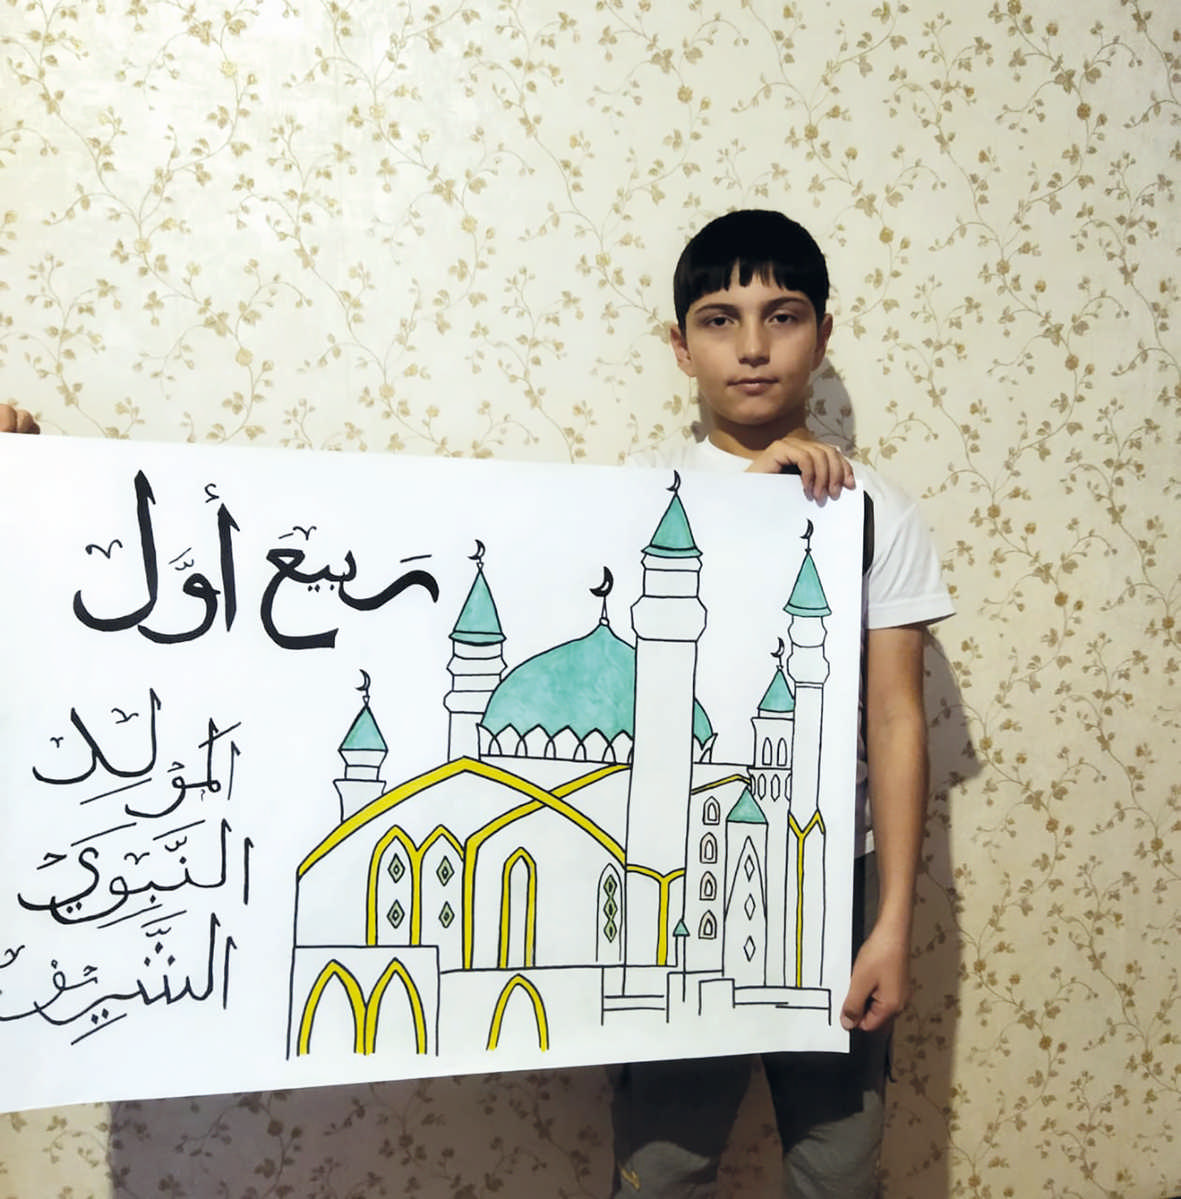 رَبِيعَ أَوَّل
المَوْلِد
النَّبَوِيّ
الشَّرِيف